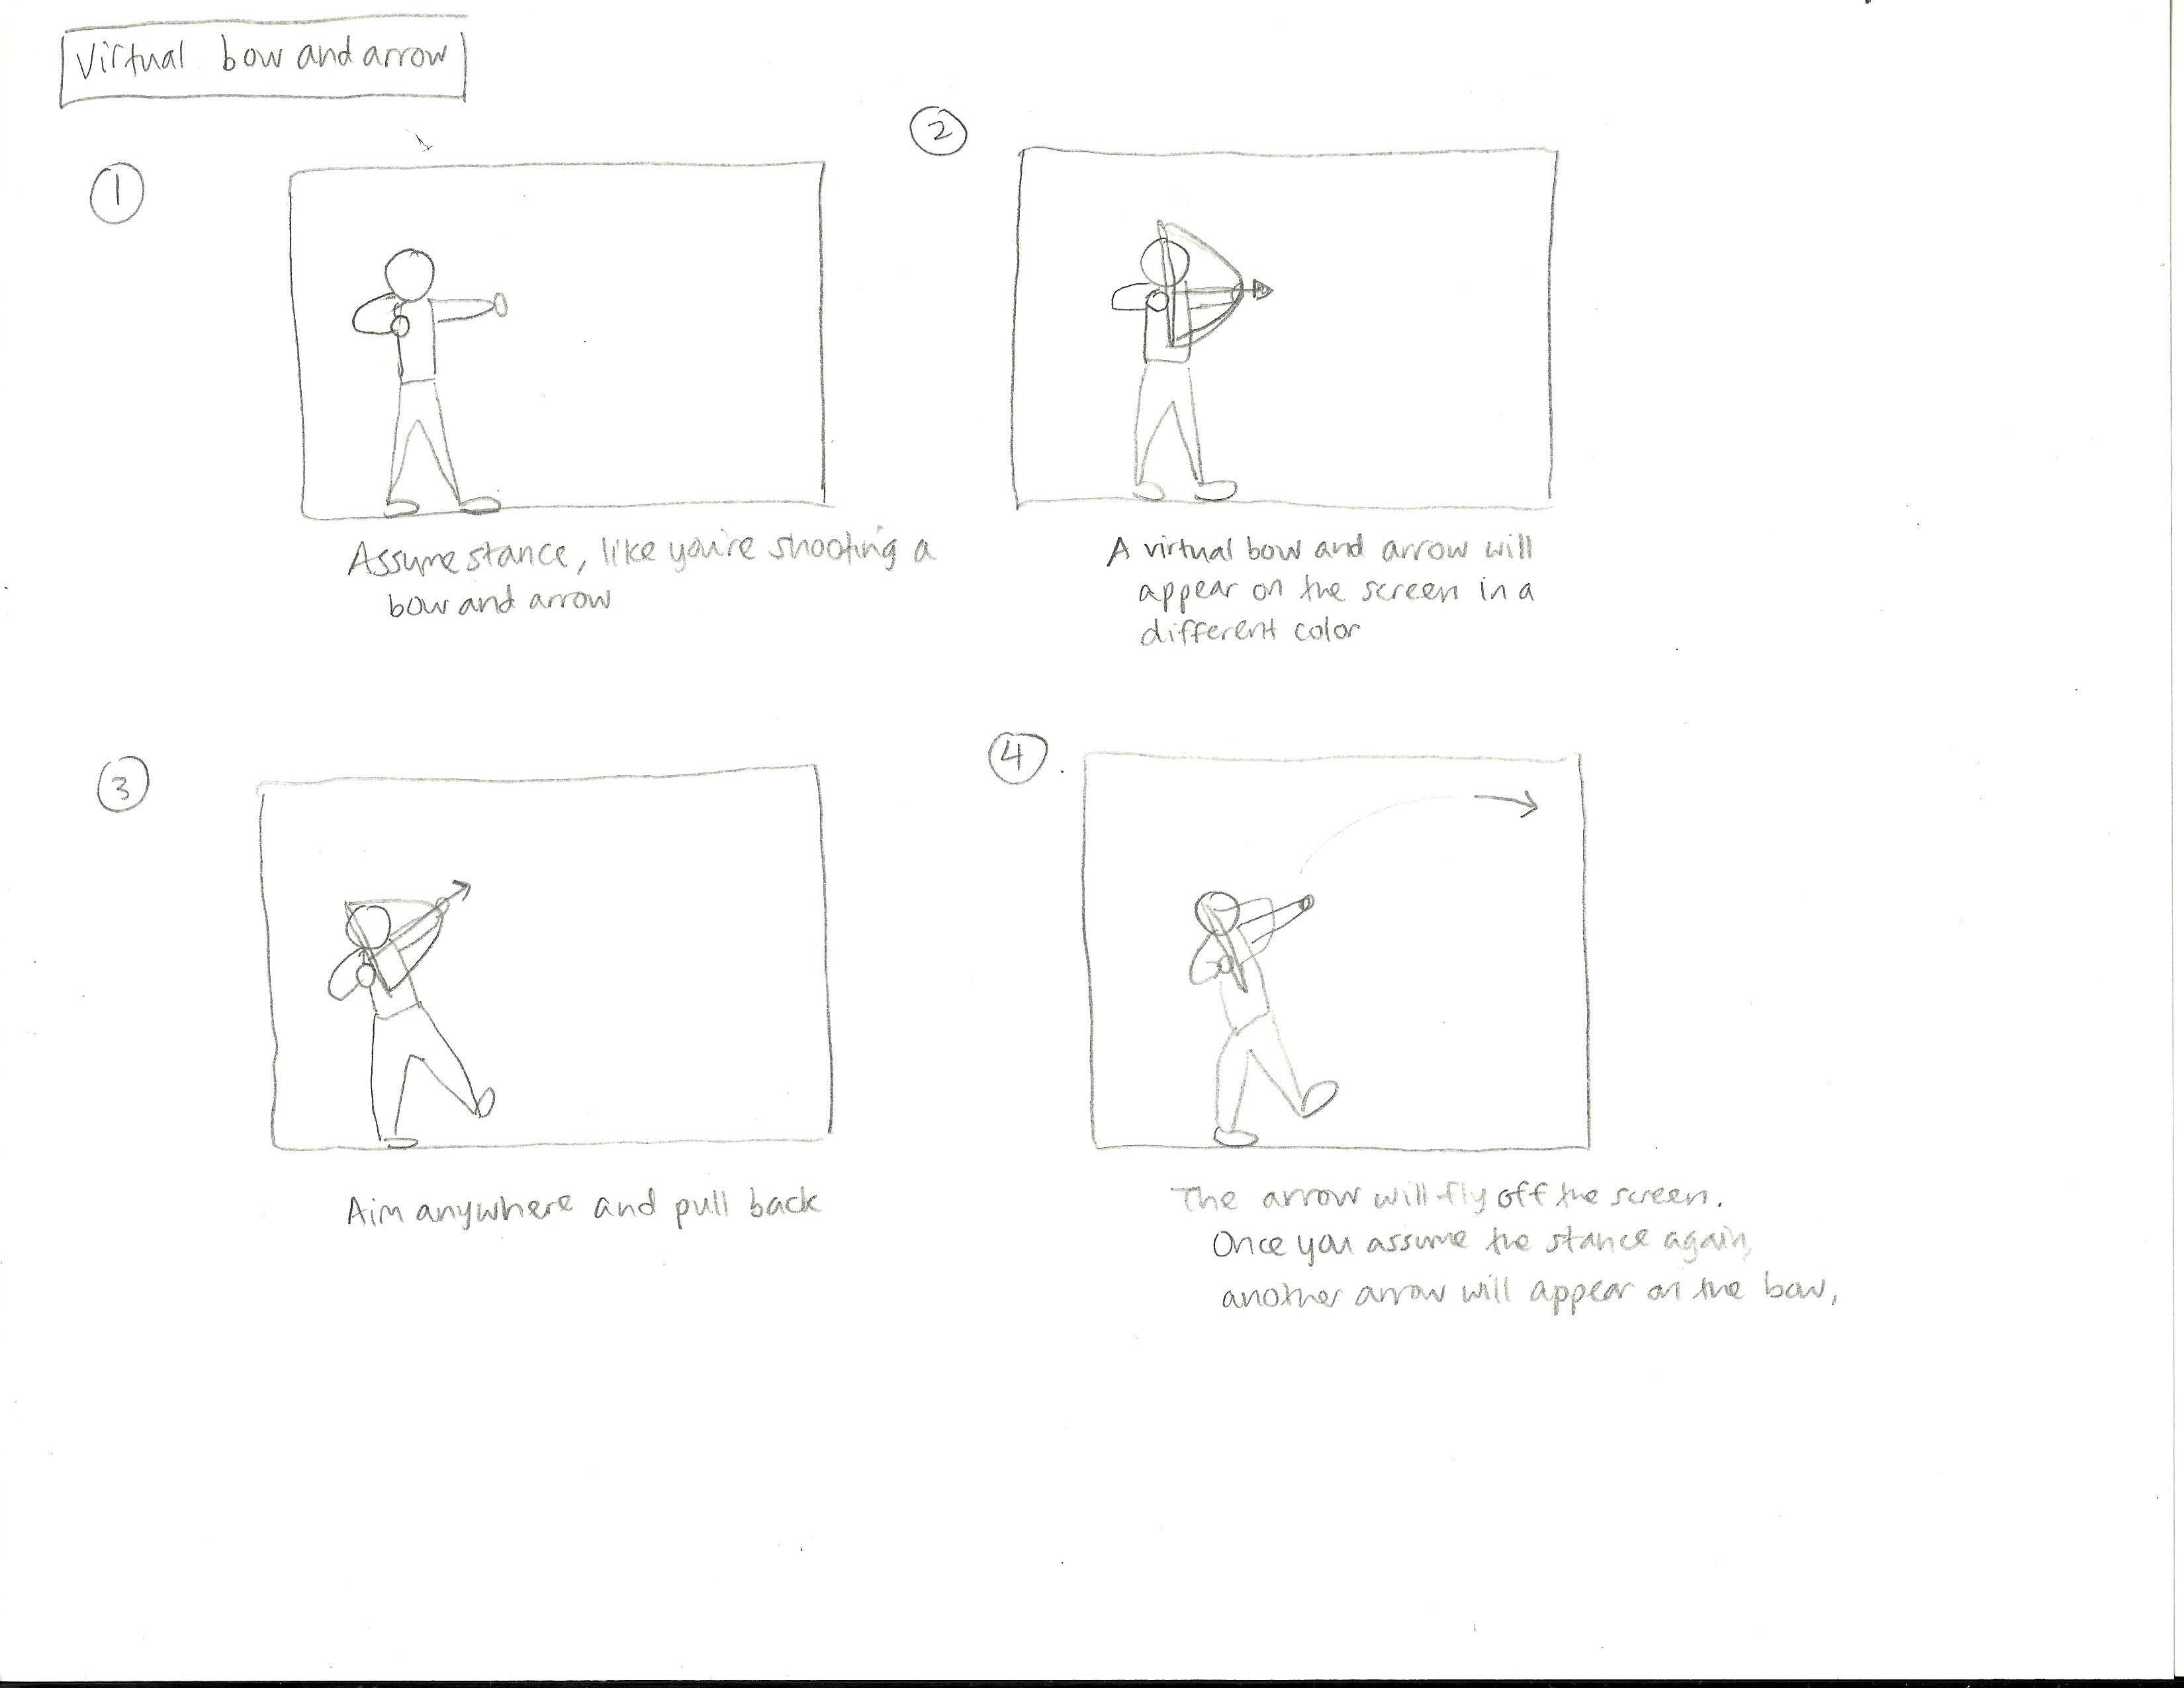 Virtual bow and arrow
1
Assume stance, like you're shooting a
bow and arrow
2
A virtual bow and arrow will
appear on the screen in a
different color
3
Aim anywhere and pull back
4
The arrow will fly off the screen.
Once you assume the stance again,
another arrow will appear on the bow,